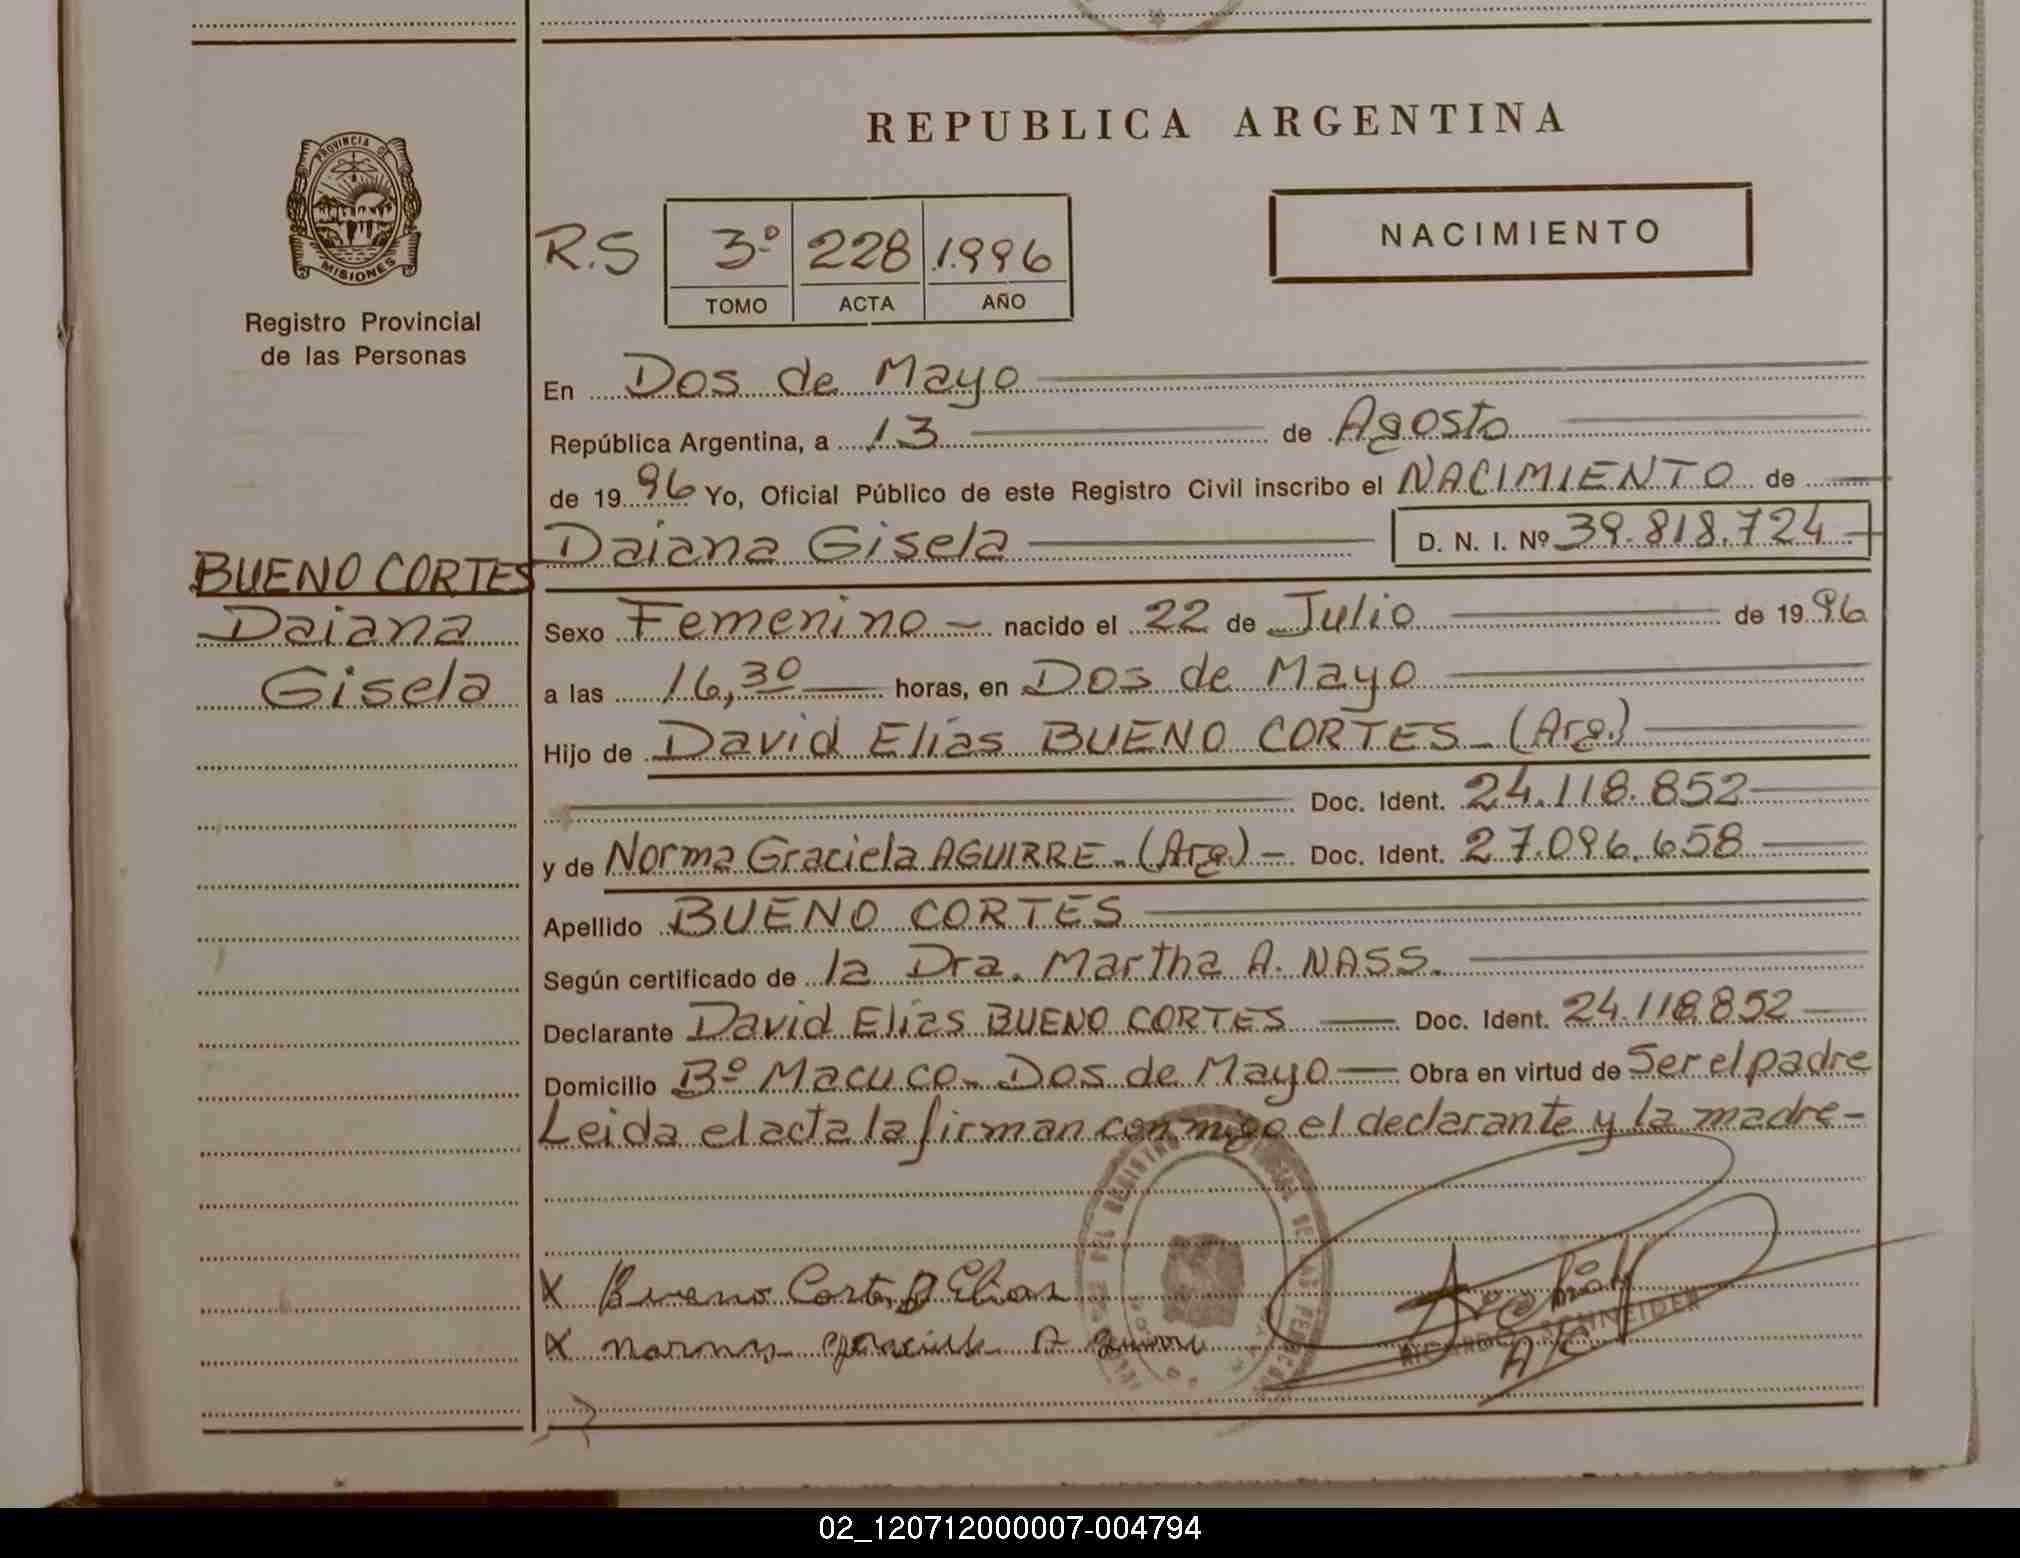 REPUBLICA ARGENTINA
PROVINCIA DE
MISIONES
Registro Provincial
de las Personas
R.S 3º 228 1.996
TOMO ACTA AÑO
NACIMIENTO
En Dos de Mayo
República Argentina, a 13 de Agosto
de 19 96 Yo, Oficial Público de este Registro Civil inscribo el NACIMIENTO de
Daiana Gisela D. N. I. Nº 39.818.724
BUENO CORTES
Daiana
Gisela
Sexo Femenino - nacido el 22 de Julio de 19 96
a las 16,30 horas, en Dos de Mayo
Hijo de David Elias BUENO CORTES - (Arg.)
Doc. Ident. 24.118.852
y de Norma Graciela AGUIRRE - (Arg.) - Doc. Ident. 27.096.658
Apellido BUENO CORTES
Según certificado de la Dra. Martha A. NASS.
Declarante David Elias BUENO CORTES Doc. Ident. 24.118.852
Domicilio Bº Macuco - Dos de Mayo Obra en virtud de Ser el padre
Leida el acta la firman conmigo el declarante y la madre -
X Bueno Cortes D Elias
X Norma Graciela Aguirre
RICARDO SCHNEIDER
02_120712000007-004794